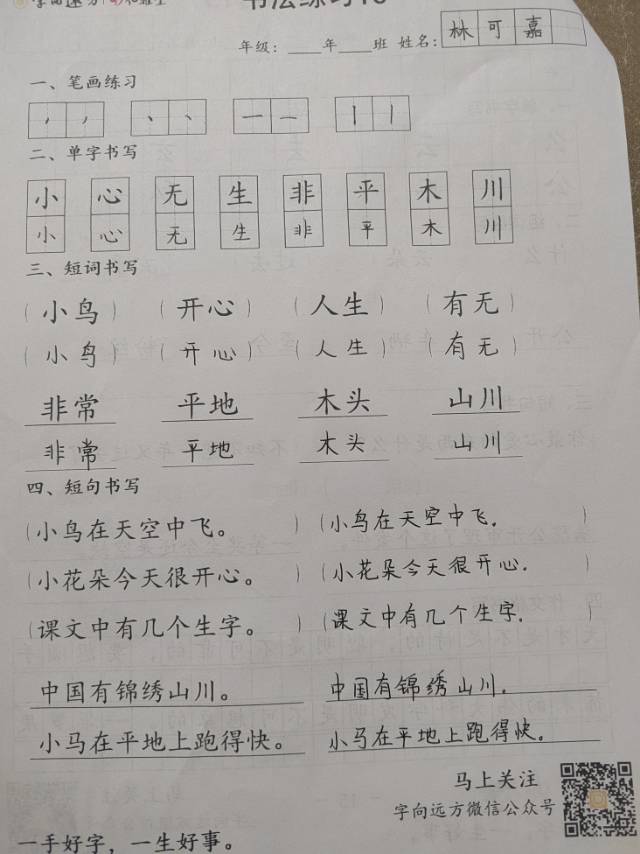 书法练习
年级：____年____班 姓名：林可嘉
一、笔画练习
二、单字书写
小 心 无 生 非 平 木 川
小 心 无 生 非 平 木 川
三、短词书写
（小鸟）（开心）（人生）（有无）
（小鸟）（开心）（人生）（有无）
非常 平地 木头 山川
非常 平地 木头 山川
四、短句书写
（小鸟在天空中飞。）（小鸟在天空中飞.）
（小花朵今天很开心。）（小花朵今天很开心.）
（课文中有几个生字。）（课文中有几个生字.）
中国有锦绣山川。 中国有锦绣山川.
小马在平地上跑得快。 小马在平地上跑得快.
马上关注
字向远方微信公众号
一手好字，一生好事。